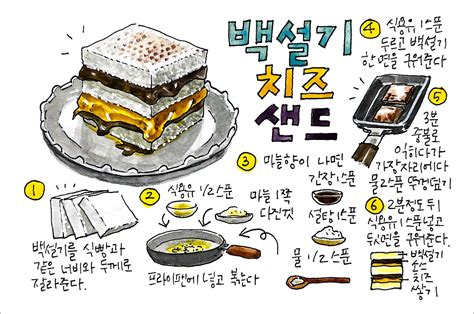 백설기
치즈
샌드
1
백설기를 식빵과
같은 너비와 두께로
잘라준다.
2
식용유 1/2스푼
마늘 1쪽
다진것
프라이팬에 넣고 볶는다
3
마늘향이 나면
간장 1스푼
설탕 1스푼
물 1/2 스푼
4
식용유 1스푼
두르고 백설기
한면을 구워준다.
5
3분
중불로
익히다가
가장자리에다
물 2스푼 뚜껑덮기
6
2분정도 뒤
식용유 1스푼 넣고
뒷면을 구워준다.
백설기
소스
치즈
쌓기